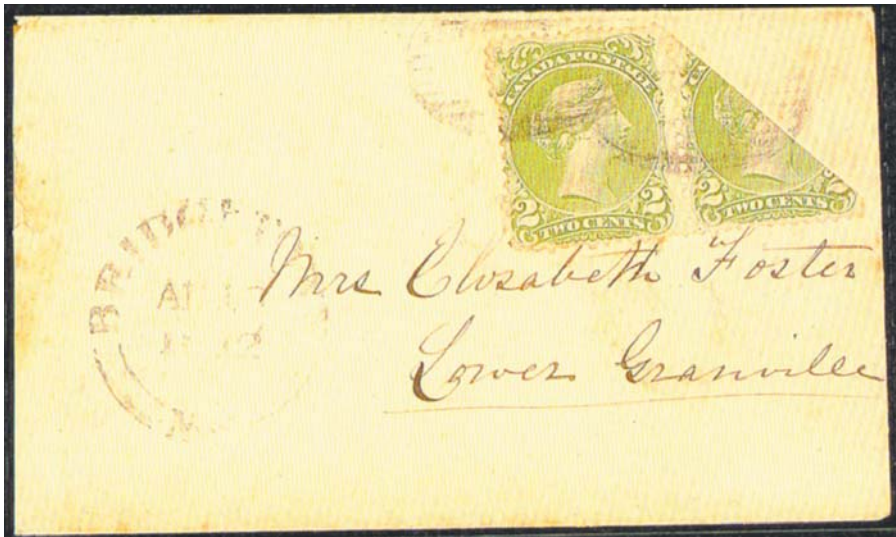 CANADA POSTAGE
2 TWO CENTS 2
2 TWO CENTS 2
Mrs Elisabeth Foster
Lower Granville